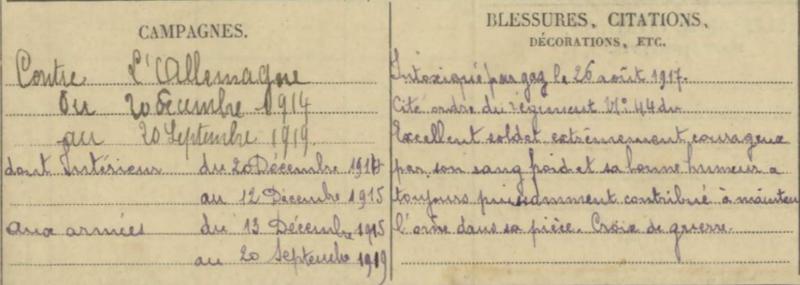 CAMPAGNES.
Contre L'Allemagne
Du 20 décembre 1914
au 20 Septembre 1919.
dont Intérieur du 20 Décembre 1914
au 12 Décembre 1915
aux armées du 13 Décembre 1915
au 20 Septembre 1919
BLESSURES, CITATIONS,
DÉCORATIONS, ETC.
Intoxiqué par gaz le 26 août 1917.
Cité ordre du régiment N° 44 du
Excellent soldat extrêmement courageux
par son sang froid et sa bonne humeur a
toujours puissamment contribué à mainten
l'ordre dans sa pièce. Croix de guerre.